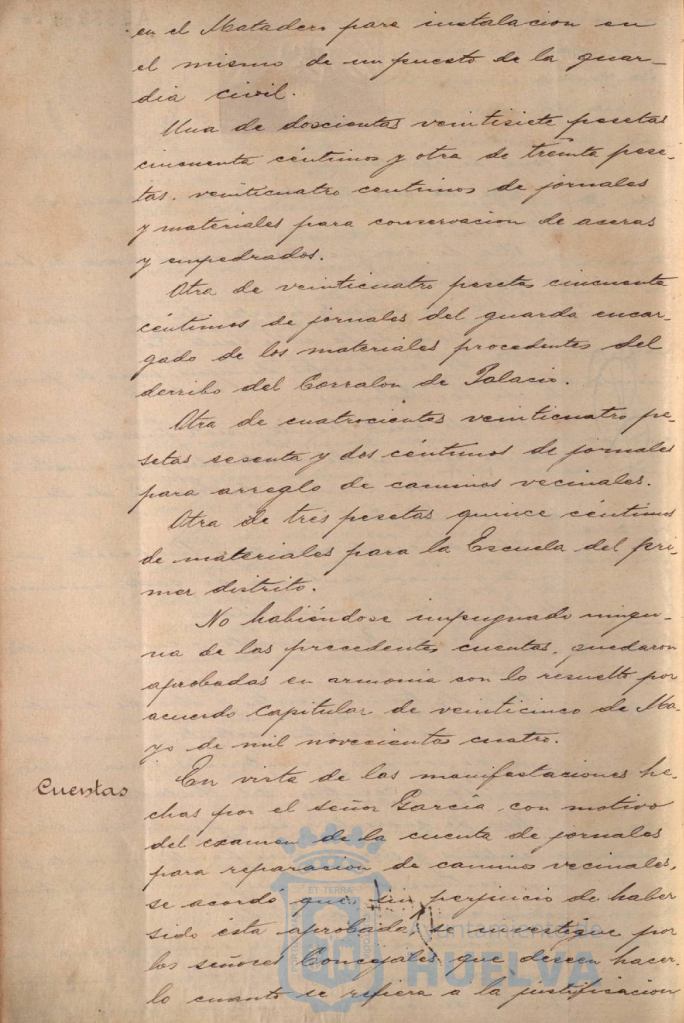 en el Matadero para instalacion en
el mismo de un puesto de la guar-
dia civil.
Una de doscientas veintisiete pesetas
cincuenta céntimos y otra de treinta pese-
tas, veinticuatro centimos de jornales
y materiales para conservacion de aceras
y empedrados.
Otra de veinticuatro pesetas cincuenta
céntimos de jornales del guarda encar-
gado de los materiales procedentes del
derribo del Corralon de Palacio.
Otra de cuatrocientas veinticuatro pe-
setas sesenta y dos céntimos de jornales
para arreglo de caminos vecinales.
Otra de tres pesetas quince céntimos
de materiales para la Escuela del pri-
mer distrito.
No habiéndose impugnado ningu-
na de las precedentes cuentas, quedaron
aprobadas en armonia con lo resuelto por
acuerdo Capitular de veinticinco de Ma-
yo de mil novecientos cuatro.
Cuentas
En vista de las manifestaciones he-
chas por el señor García, con motivo
del examen de la cuenta de jornales
para reparacion de caminos vecinales,
se acordó que, sin perjuicio de haber
sido ésta aprobada, se investigue por
los señores Concejales que deseen hacer-
lo cuanto se refiera a la justificacion
ET TERRA
Ayuntamiento de
HUELVA